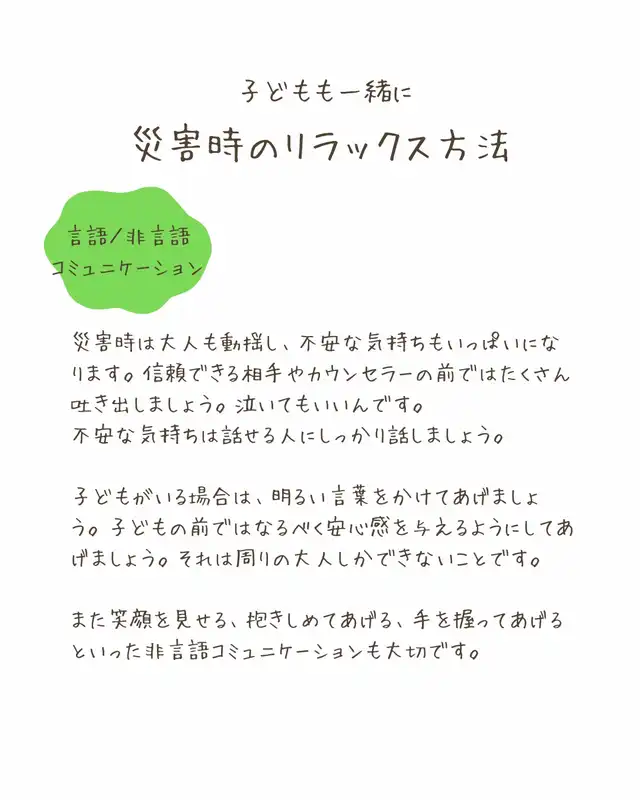 子どもも一緒に
災害時のリラックス方法
言語/非言語
コミュニケーション
災害時は大人も動揺し、不安な気持ちもいっぱいにな
ります。信頼できる相手やカウンセラーの前ではたくさん
吐き出しましょう。泣いてもいいんです。
不安な気持ちは話せる人にしっかり話しましょう。
子どもがいる場合は、明るい言葉をかけてあげましょ
う。子どもの前ではなるべく安心感を与えるようにしてあ
げましょう。それは周りの大人しかできないことです。
また笑顔を見せる、抱きしめてあげる、手を握ってあげる
といった非言語コミュニケーションも大切です。